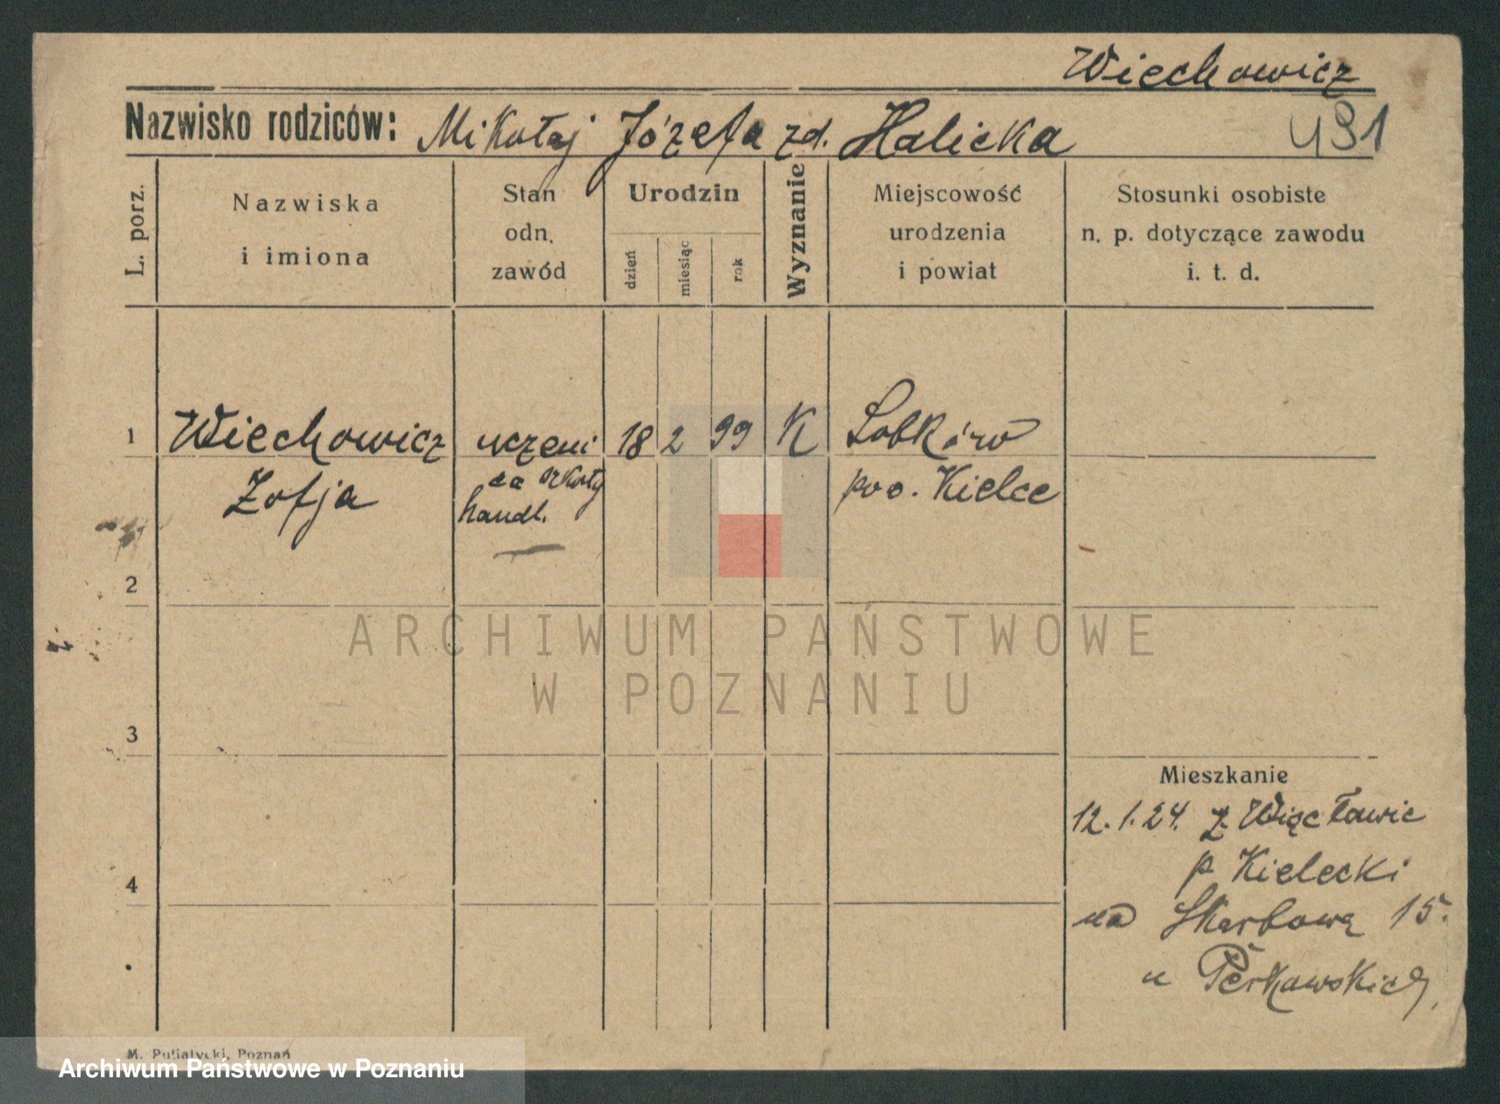 Wiechowicz
Nazwisko rodziców: Mikołaj Józefa zd. Halicka
491
L. porz.
Nazwiska
i imiona
Stan
odn.
zawód
Urodzin
dzień
miesiąc
rok
Wyznanie
Miejscowość
urodzenia
i powiat
Stosunki osobiste
n. p. dotyczące zawodu
i. t. d.
1
Wiechowicz
Zofja
uczeni
ca szkoły
handl.
18 2 99 K
Sobków
pow. Kielce
2
ARCHIWUM PAŃSTWOWE
W POZNANIU
3
Mieszkanie
12.1.24. z Więcławic
p Kielecki
na Skarbową 15.
u
4
M. Puljatycki, Poznań
Archiwum Państwowe w Poznaniu